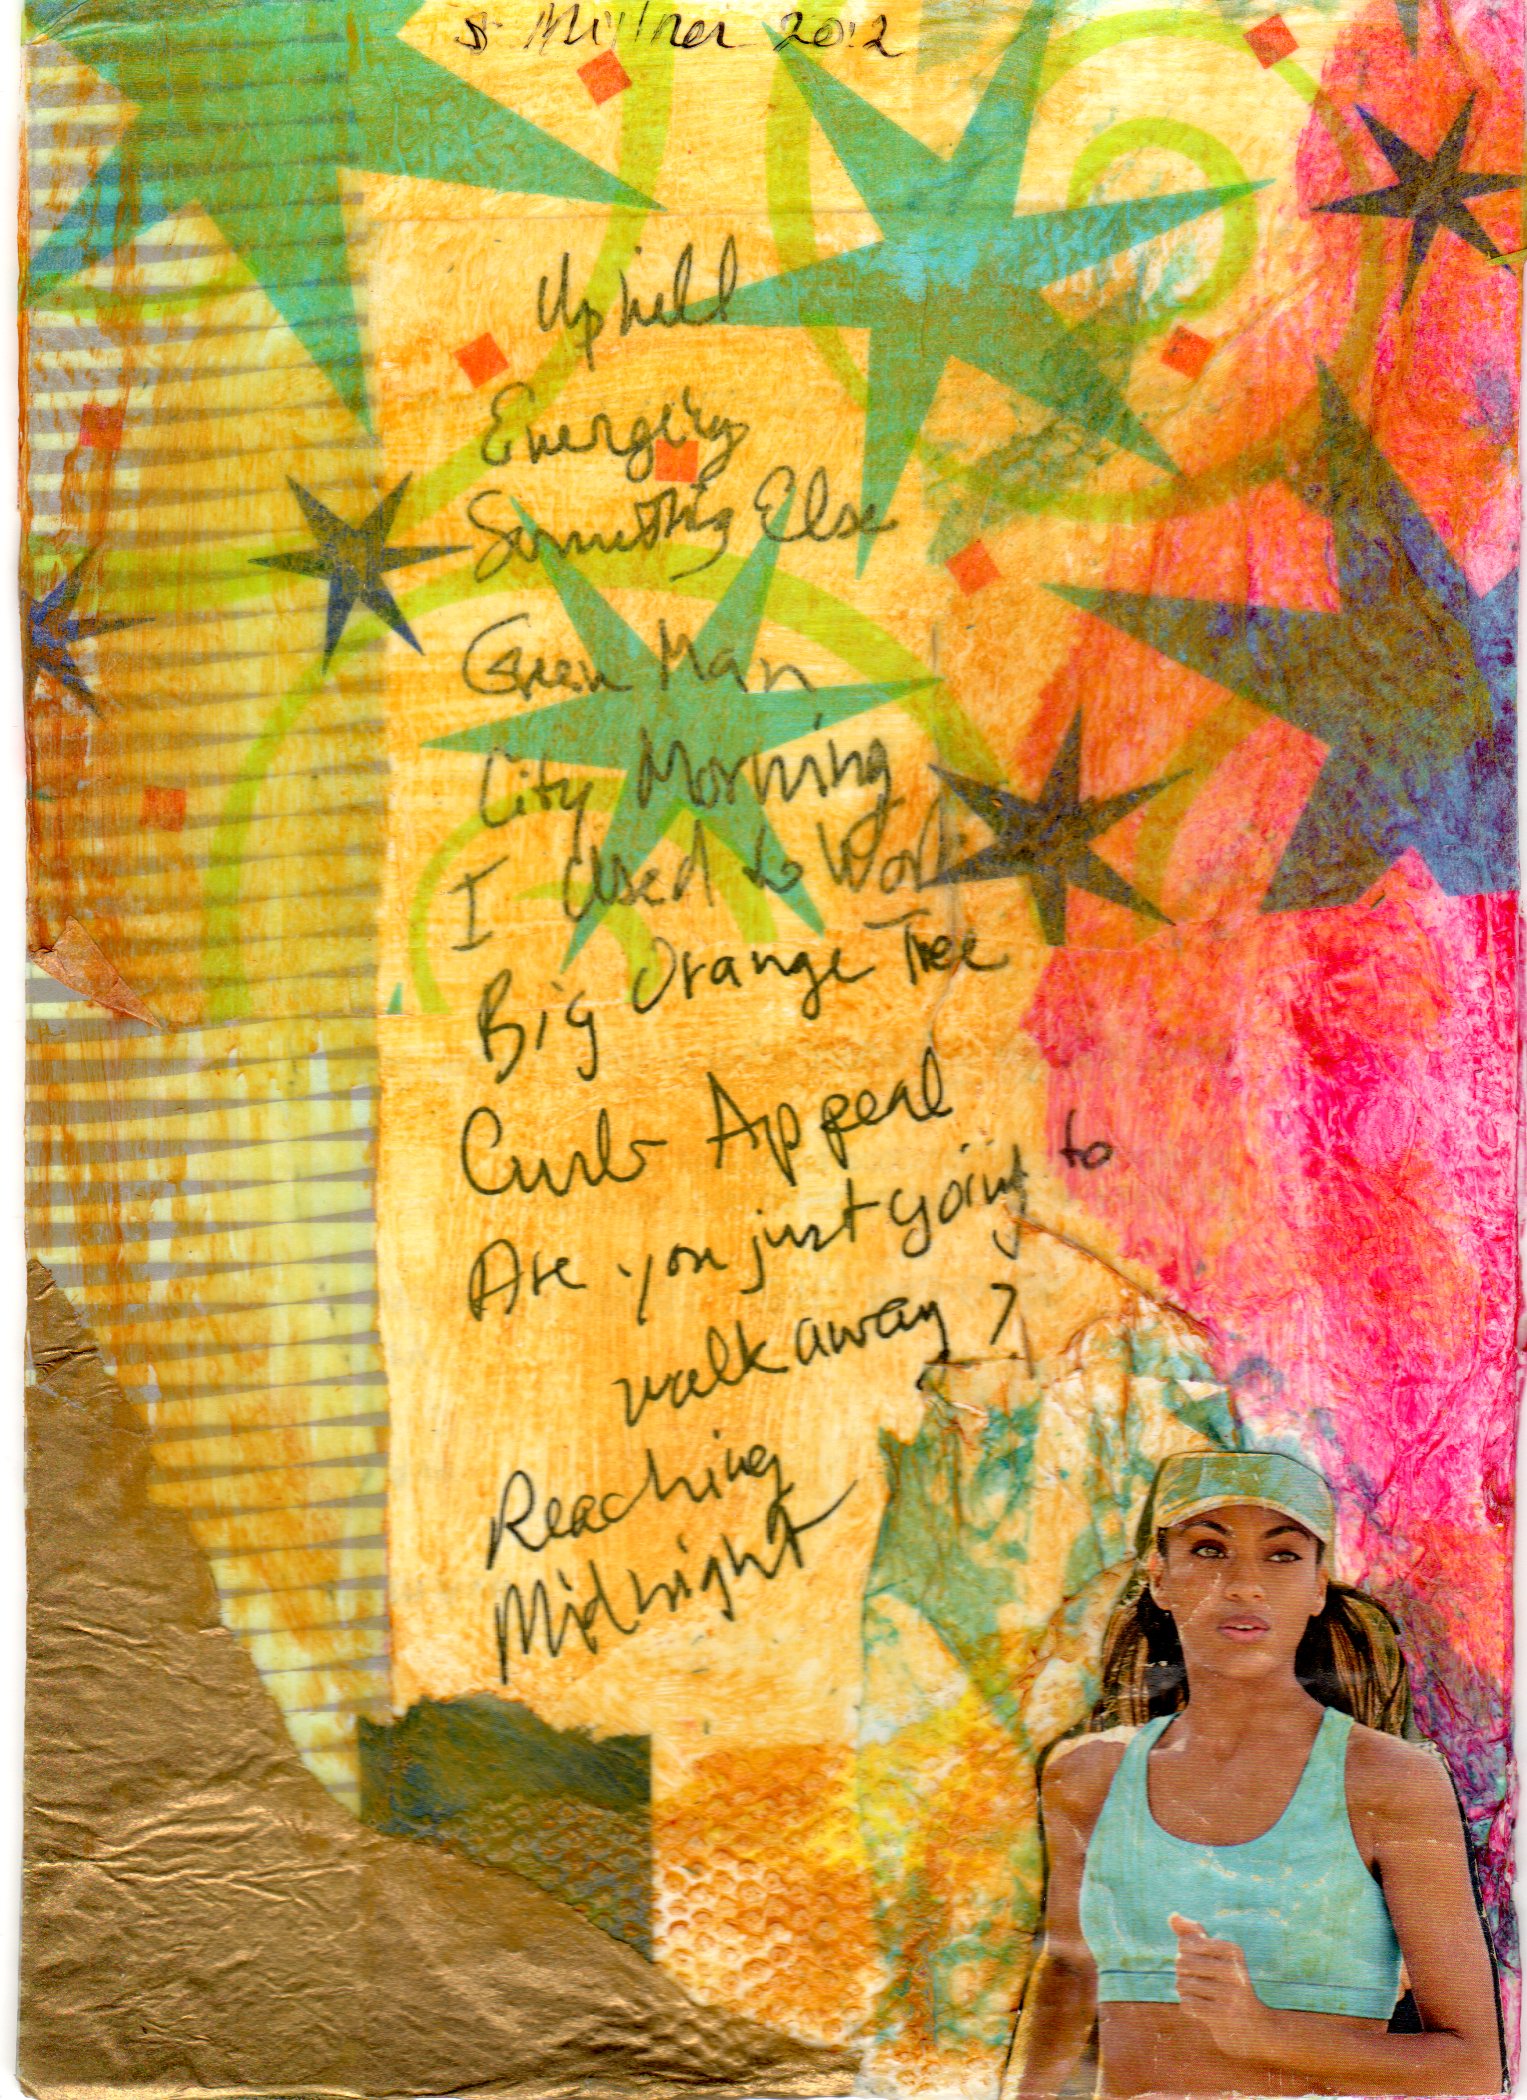 S Millner 2012
Uphill
Energeirs
Something Else
Green Man
City Morning
I Used to Work
Big Orange Tree
Curb Appeal
Are you just going to
walk away?
Reaching
Midnight